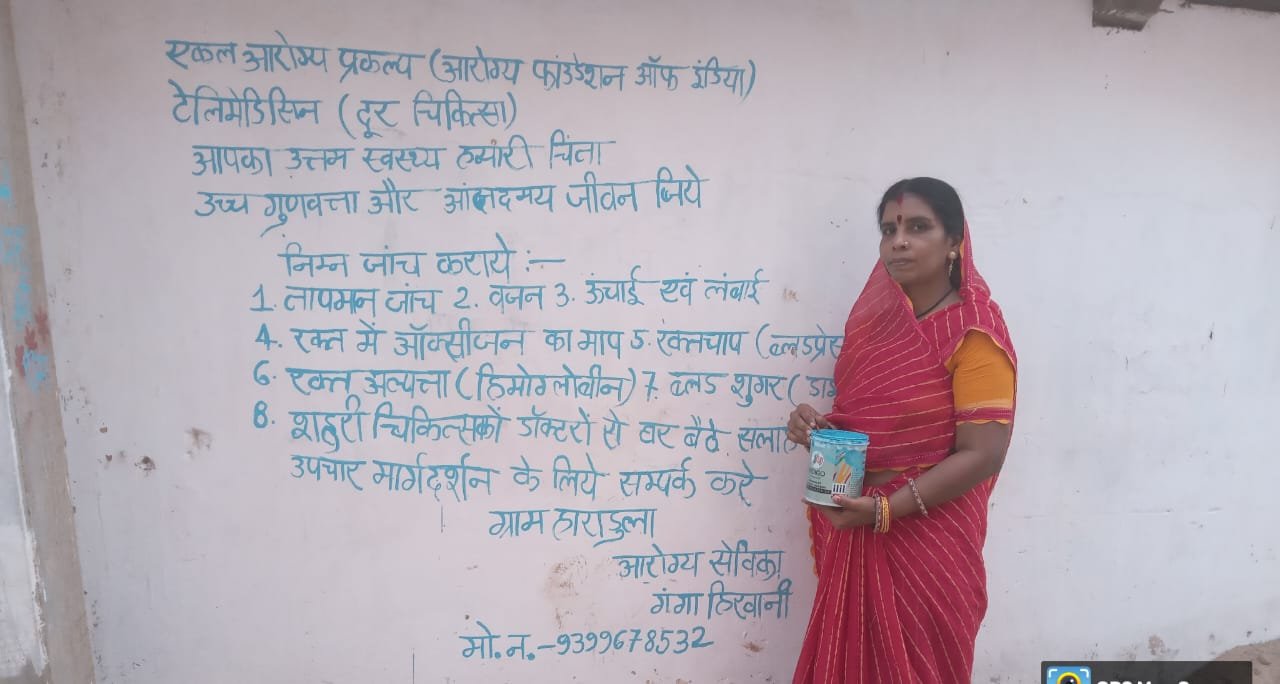 एकल आरोग्य प्रकल्प (आरोग्य फांउडेशन ऑफ इंडिया)
टेलिमेडिसिन (दूर चिकित्सा)
आपका उत्तम स्वस्थ्य हमारी चिंता
उच्च गुणवत्ता और आंनदमय जीवन जिये
निम्न जांच कराये :—
1. तापमान जांच 2. वजन 3. ऊंचाई एवं लंबाई
4. रक्त में ऑक्सीजन का माप 5. रक्तचाप (ब्लडप्रे
6. रक्त अल्पत्ता (हिमोग्लोबीन) 7. ब्लड शुगर (
8. शहरी चिकित्सकों डॉक्टरों से घर बैठे सलाह
उपचार मार्गदर्शन के लिये सम्पर्क करे
ग्राम हाराडुला
आरोग्य सेविका
गंगा हिरवानी
मो. न. -9399678532